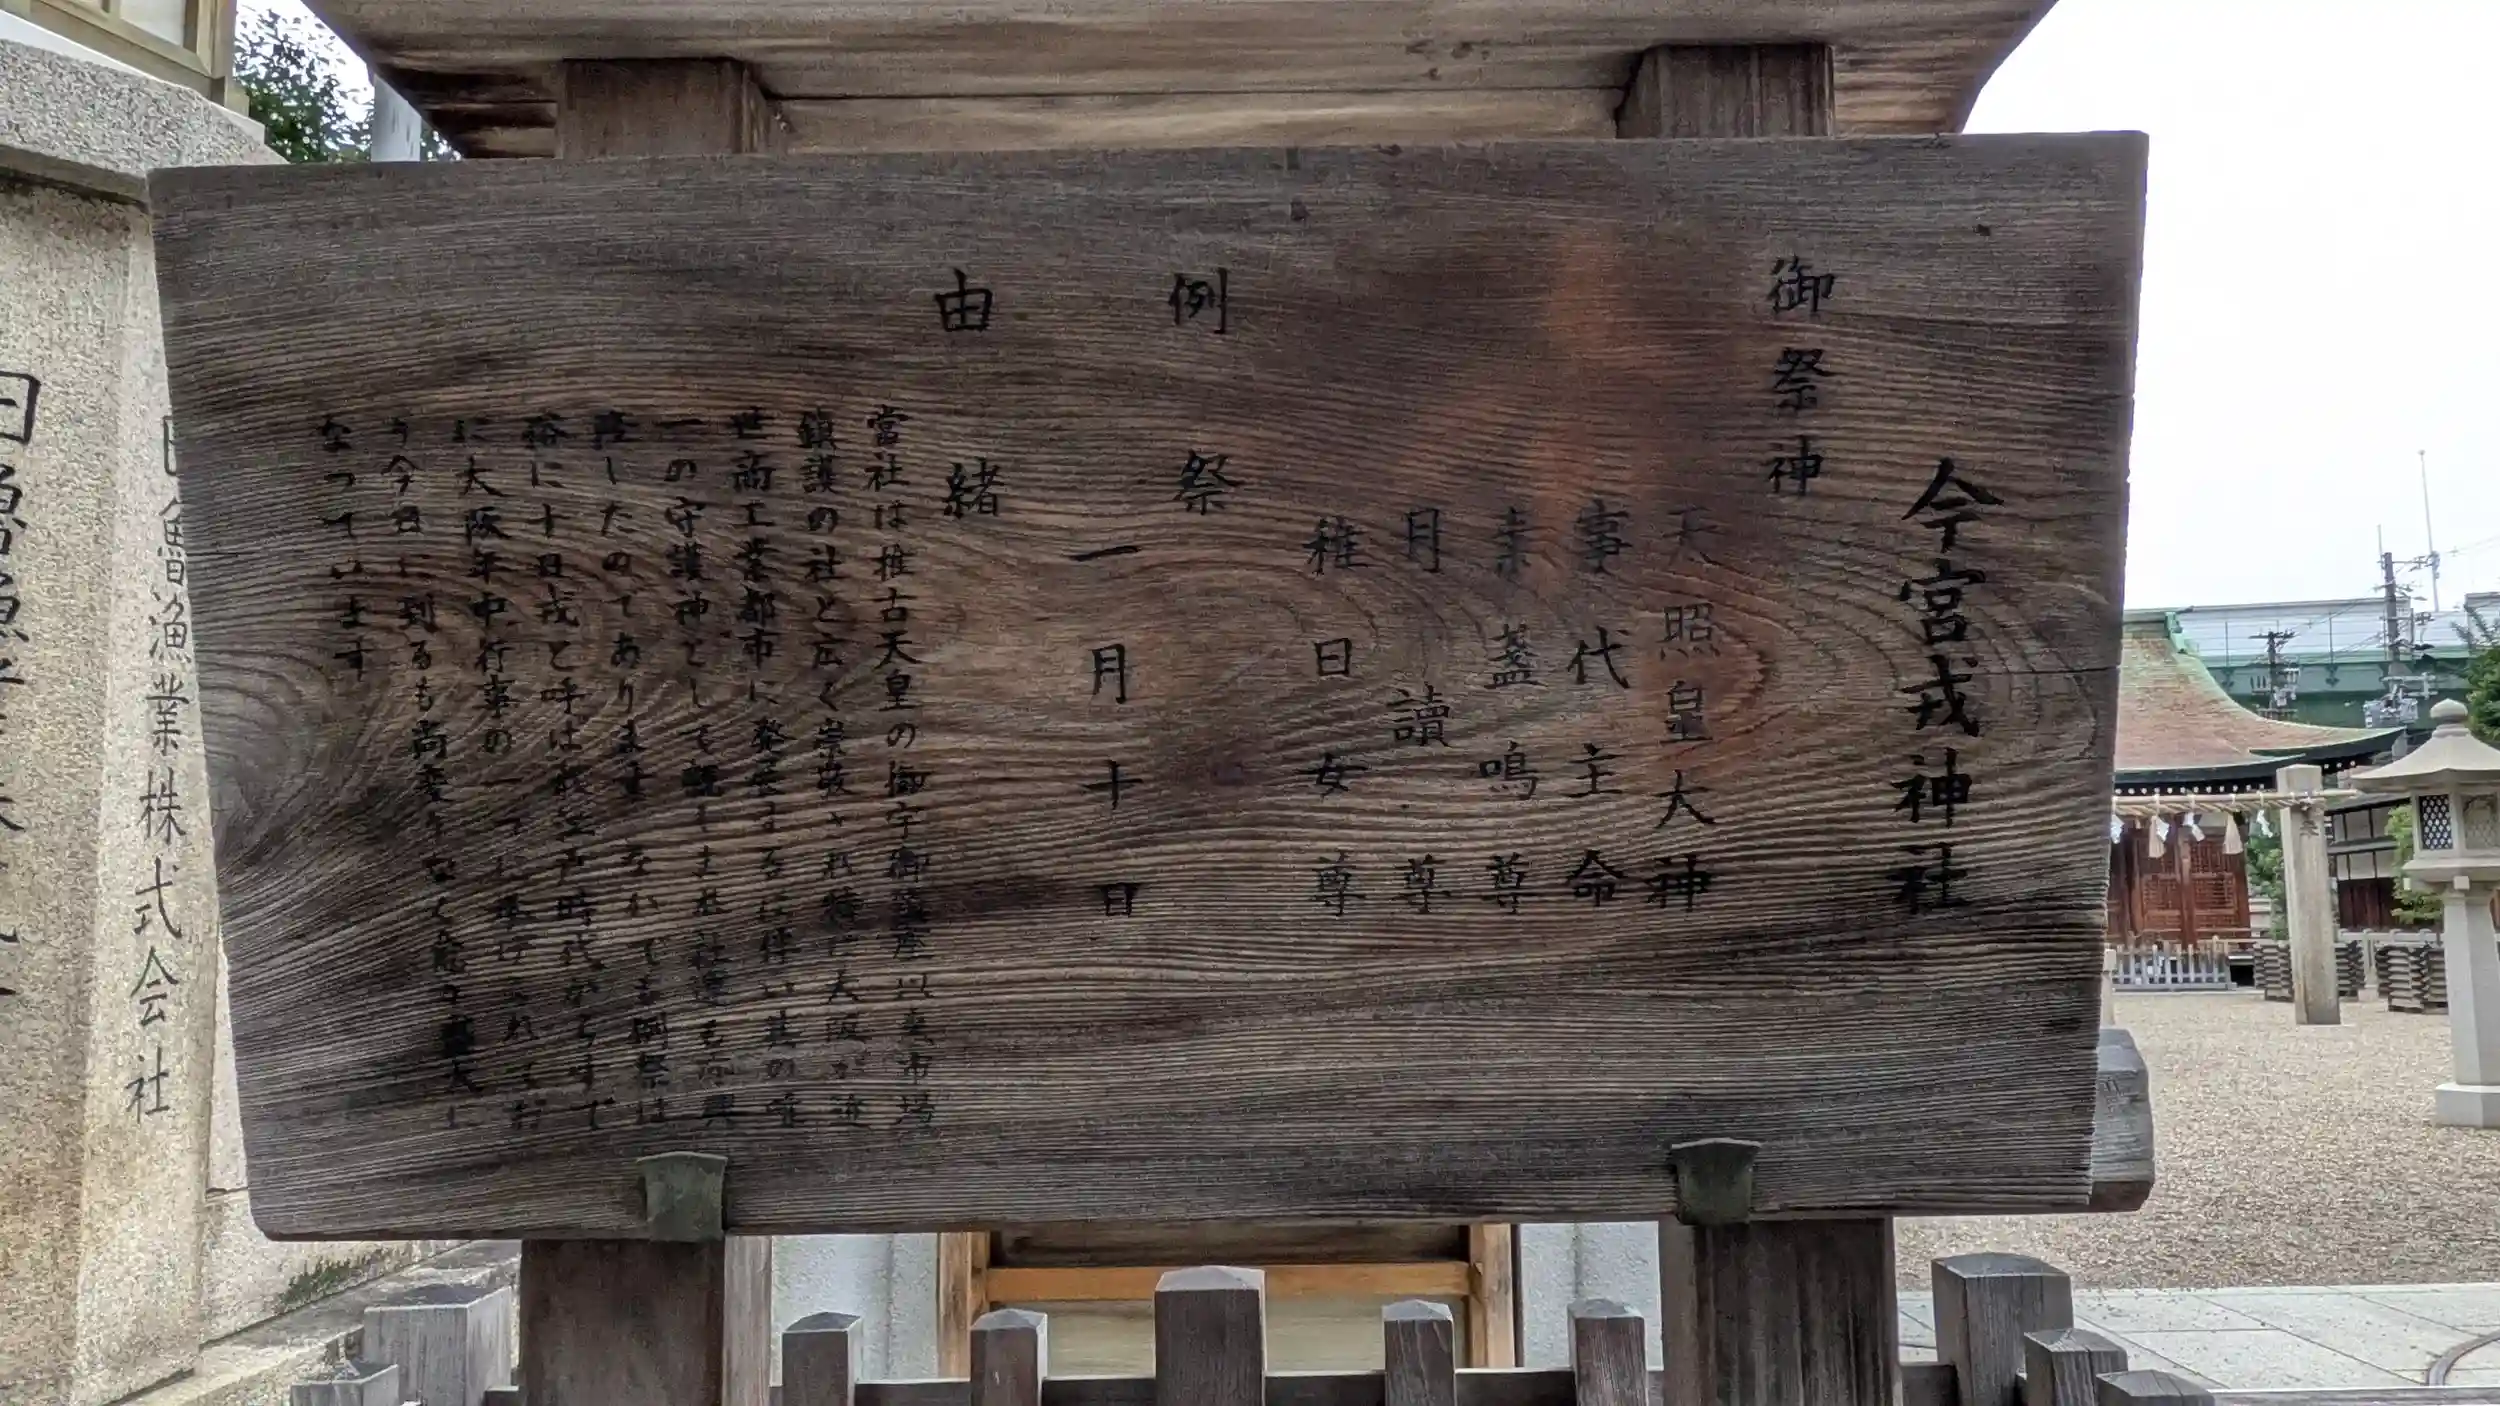 今宮戎神社
御祭神
天照皇大神
事代主命
素盞鳴尊
月讀尊
稚日女尊
例祭
一月十日
由緒
當社は推古天皇の御宇御鎮座以来市場
鎮護の社と広く崇敬され特に大阪が近
世商工業都市に発展するに伴い其の唯
一の守護神として
隆したのであります なかでも例祭は
俗に十日戎と呼ば 時代からすで
に大阪年中行事の一つに挙げられてお
り今日に到るも尚変りなく 盛大に
なっています
田魚漁業株式会社